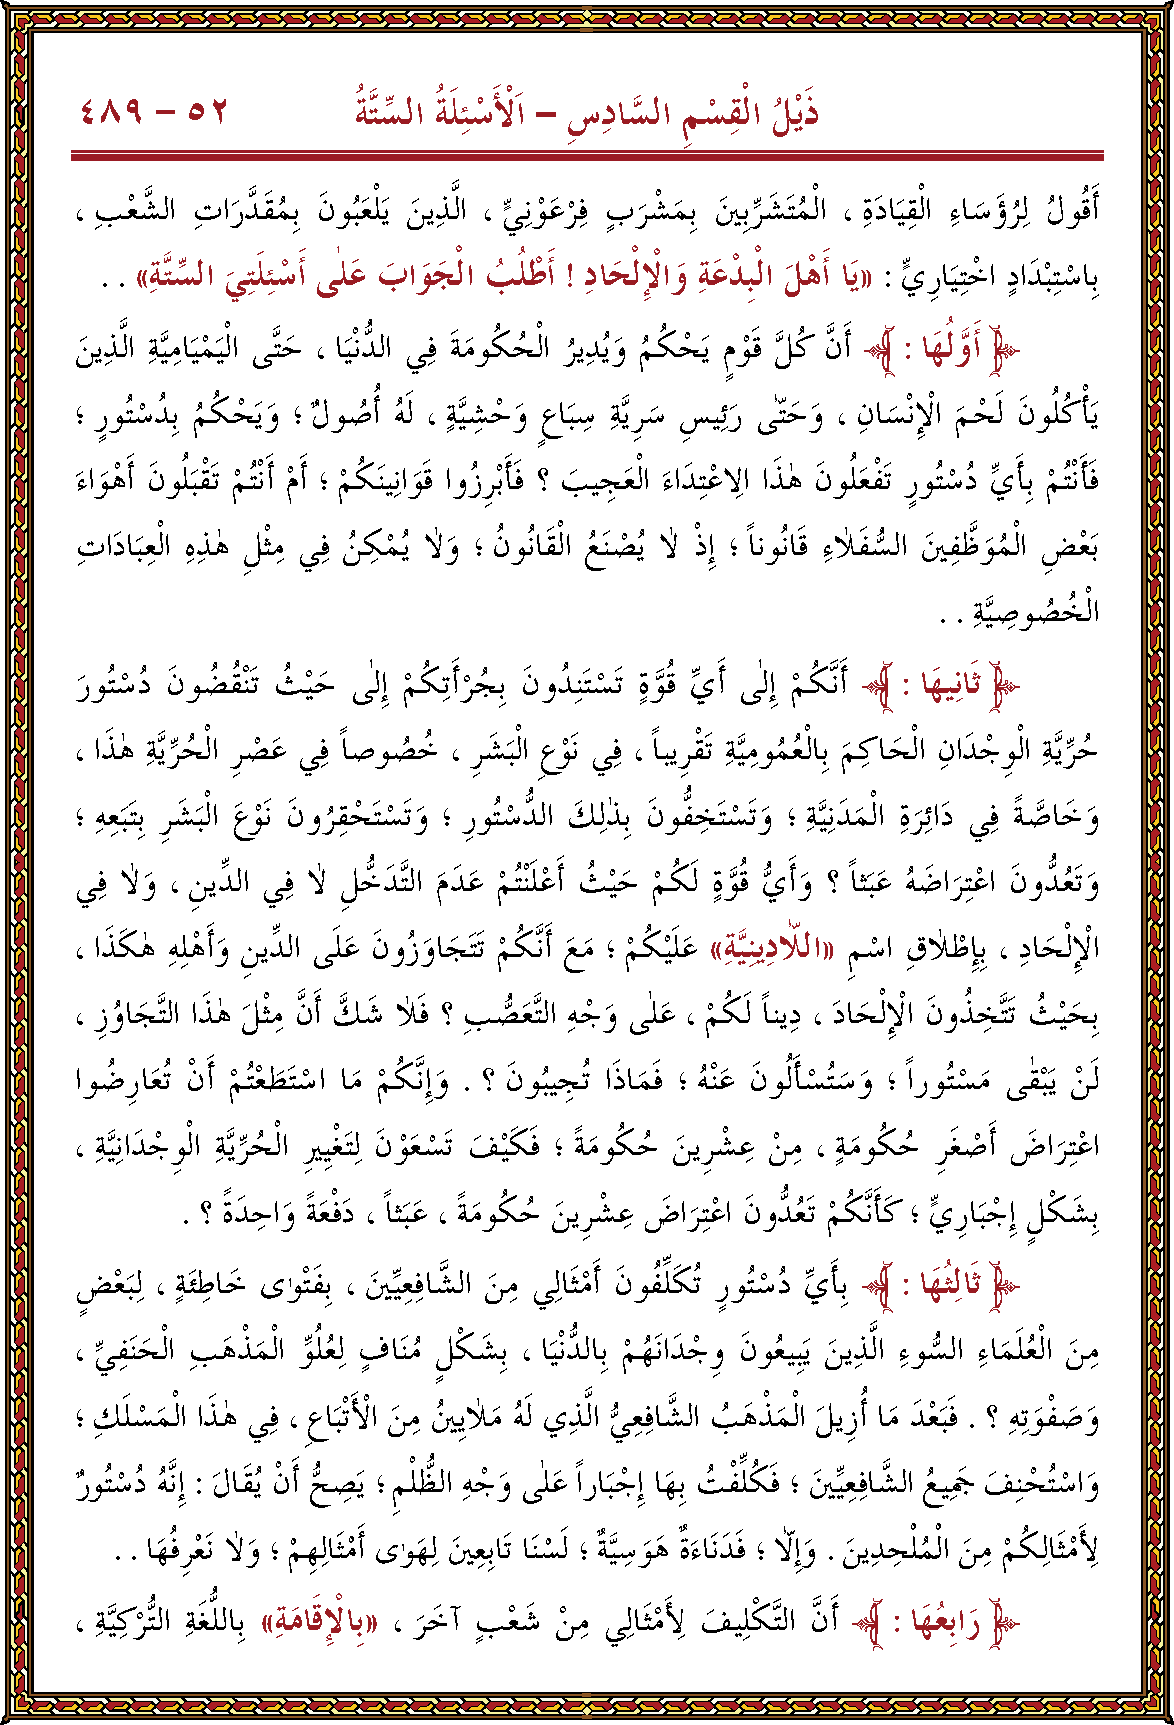 ذَيْلُ الْقِسْمِ السَّادِسِ – اَلْأَسْئِلَةُ السِّتَّةُ ٥٢ – ٤٨٩
أَقُولُ لِرُؤَسَاءِ الْقِيَادَةِ ، الْمُتَشَرِّبِينَ بِمَشْرَبٍ فِرْعَوْنِيٍّ ، الَّذِينَ يَلْعَبُونَ بِمُقَدَّرَاتِ الشَّعْبِ ،
بِاسْتِبْدَادٍ اخْتِيَارِيٍّ : «يَا أَهْلَ الْبِدْعَةِ وَالْإِلْحَادِ ! أَطْلُبُ الْجَوَابَ عَلٰى أَسْئِلَتِيَ السِّتَّةِ» . .
﴿ أَوَّلُهَا : ﴾ أَنَّ كُلَّ قَوْمٍ يَحْكُمُ وَيُدِيرُ الْحُكُومَةَ فِي الدُّنْيَا ، حَتَّى الْيَمْيَامِيَّةِ الَّذِينَ
يَأْكُلُونَ لَحْمَ الْإِنْسَانِ ، وَحَتّٰى رَئِيسِ سَرِيَّةِ سِبَاعٍ وَحْشِيَّةٍ ، لَهُ أُصُولٌ ؛ وَيَحْكُمُ بِدُسْتُورٍ ؛
فَأَنْتُمْ بِأَيِّ دُسْتُورٍ تَفْعَلُونَ هٰذَا الِاعْتِدَاءَ الْعَجِيبَ ؟ فَأَبْرِزُوا قَوَانِينَكُمْ ؛ أَمْ أَنْتُمْ تَقْبَلُونَ أَهْوَاءَ
بَعْضِ الْمُوَظَّفِينَ السُّفَلَاءِ قَانُوناً ؛ إِذْ لَا يُصْنَعُ الْقَانُونُ ؛ وَلَا يُمْكِنُ فِي مِثْلِ هٰذِهِ الْعِبَادَاتِ
الْخُصُوصِيَّةِ . .
﴿ ثَانِيهَا : ﴾ أَنَّكُمْ إِلٰى أَيِّ قُوَّةٍ تَسْتَنِدُونَ بِجُرْأَتِكُمْ إِلٰى حَيْثُ تَنْقُضُونَ دُسْتُورَ
حُرِّيَّةِ الْوِجْدَانِ الْحَاكِمَ بِالْعُمُومِيَّةِ تَقْرِيباً ، فِي نَوْعِ الْبَشَرِ ، خُصُوصاً فِي عَصْرِ الْحُرِّيَّةِ هٰذَا ،
وَخَاصَّةً فِي دَائِرَةِ الْمَدَنِيَّةِ ؛ وَتَسْتَخِفُّونَ بِذٰلِكَ الدُّسْتُورِ ؛ وَتَسْتَحْقِرُونَ نَوْعَ الْبَشَرِ بِتَبَعِهِ ؛
وَتَعُدُّونَ اعْتِرَاضَهُ عَبَثاً ؟ وَأَيُّ قُوَّةٍ لَكُمْ حَيْثُ أَعْلَنْتُمْ عَدَمَ التَّدَخُّلِ لَا فِي الدِّينِ ، وَلَا فِي
الْإِلْحَادِ ، بِإِطْلَاقِ اسْمِ «اللَّادِينِيَّةِ» عَلَيْكُمْ ؛ مَعَ أَنَّكُمْ تَتَجَاوَزُونَ عَلَى الدِّينِ وَأَهْلِهِ هٰكَذَا ،
بِحَيْثُ تَتَّخِذُونَ الْإِلْحَادَ ، دِيناً لَكُمْ ، عَلٰى وَجْهِ التَّعَصُّبِ ؟ فَلَا شَكَّ أَنَّ مِثْلَ هٰذَا التَّجَاوُزِ ،
لَنْ يَبْقٰى مَسْتُوراً ؛ وَسَتُسْأَلُونَ عَنْهُ ؛ فَمَاذَا تُجِيبُونَ ؟ . وَإِنَّكُمْ مَا اسْتَطَعْتُمْ أَنْ تُعَارِضُوا
اعْتِرَاضَ أَصْغَرِ حُكُومَةٍ ، مِنْ عِشْرِينَ حُكُومَةً ؛ فَكَيْفَ تَسْعَوْنَ لِتَغْيِيرِ الْحُرِّيَّةِ الْوِجْدَانِيَّةِ ،
بِشَكْلٍ إِجْبَارِيٍّ ؛ كَأَنَّكُمْ تَعُدُّونَ اعْتِرَاضَ عِشْرِينَ حُكُومَةً ، عَبَثاً ، دَفْعَةً وَاحِدَةً ؟ .
﴿ ثَالِثُهَا : ﴾ بِأَيِّ دُسْتُورٍ تُكَلِّفُونَ أَمْثَالِي مِنَ الشَّافِعِيِّينَ ، بِفَتْوٰى خَاطِئَةٍ ، لِبَعْضٍ
مِنَ الْعُلَمَاءِ السُّوءِ الَّذِينَ يَبِيعُونَ وِجْدَانَهُمْ بِالدُّنْيَا ، بِشَكْلٍ مُنَافٍ لِعُلُوِّ الْمَذْهَبِ الْحَنَفِيِّ ،
وَصَفْوَتِهِ ؟ . فَبَعْدَ مَا أُزِيلَ الْمَذْهَبُ الشَّافِعِيُّ الَّذِي لَهُ مَلَايِينُ مِنَ الْأَتْبَاعِ ، فِي هٰذَا الْمَسْلَكِ ؛
وَاسْتُحْنِفَ جَمِيعُ الشَّافِعِيِّينَ ؛ فَكُلِّفْتُ بِهَا إِجْبَاراً عَلٰى وَجْهِ الظُّلْمِ ؛ يَصِحُّ أَنْ يُقَالَ : إِنَّهُ دُسْتُورٌ
لِأَمْثَالِكُمْ مِنَ الْمُلْحِدِينَ . وَإِلَّا ؛ فَدَنَاءَةٌ هَوَسِيَّةٌ ؛ لَسْنَا تَابِعِينَ لِهَوٰى أَمْثَالِهِمْ ؛ وَلَا نَعْرِفُهَا . .
﴿ رَابِعُهَا : ﴾ أَنَّ التَّكْلِيفَ لِأَمْثَالِي مِنْ شَعْبٍ آخَرَ ، «بِالْإِقَامَةِ» بِاللُّغَةِ التُّرْكِيَّةِ ،